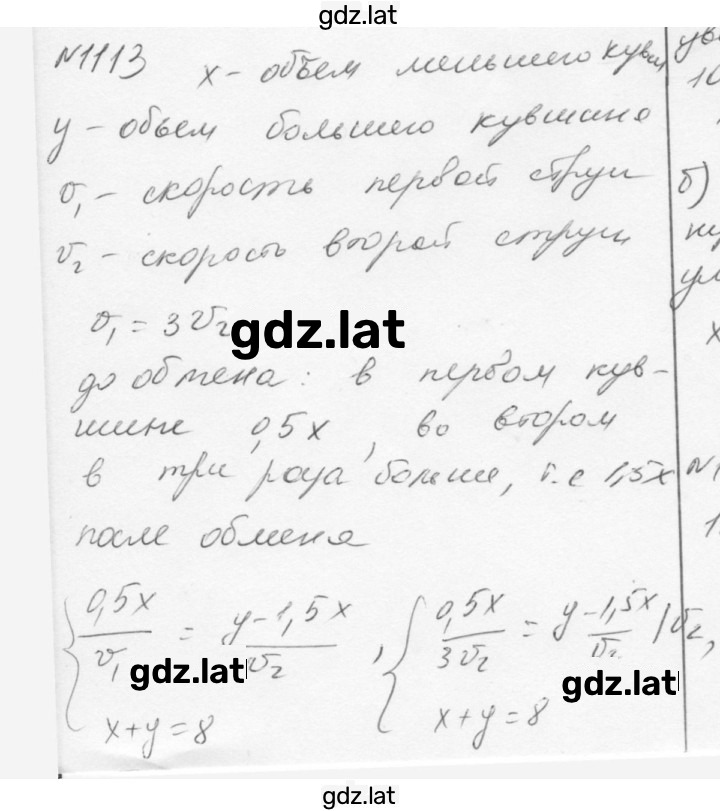 gdz.lat
№1113 x – объем меньшего кувш
y – объем большего кувшина
v₁ – скорость первой струи
v₂ – скорость второй струи б)
v₁ = 3v₂
gdz.lat
до обмена: в первом кув-
шине 0,5x, во втором
в три раза больше, т.е 1,5x
после обмена
{ 0,5x/v₁ = y–1,5x/v₂ , { 0,5x/3v₂ = y–1,5x/v₂ |v₂,
gdz.lat
gdz.lat
x+y=8 x+y=8
gdz.lat